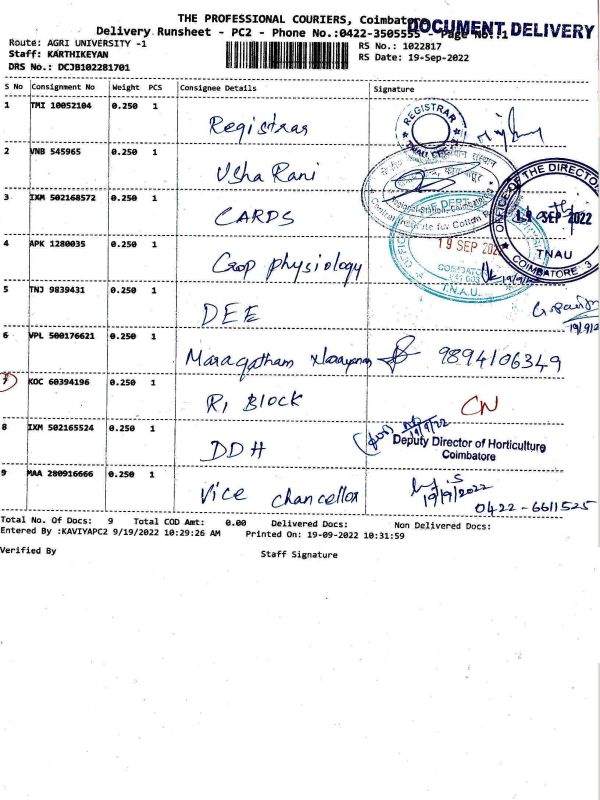 THE PROFESSIONAL COURIERS, Coimbatore
DOCUMENT DELIVERY
Delivery Runsheet - PC2 - Phone No.:0422-3505555 - Page No.:1
Route: AGRI UNIVERSITY -1
RS No.: 1022817
Staff: KARTHIKEYAN
RS Date: 19-Sep-2022
DRS No.: DCJB102281701
S No Consignment No Weight PCS Consignee Details Signature
1 TMI 10052104 0.250 1 Registrar
REGISTRAR
TNAU
2 VNB 545965 0.250 1 Usha Rani
Regional Station, Coimbatore
Central Institute for Cotton
3 IXM 502168572 0.250 1 CARDS
OFFICE OF THE DIRECTOR
19 SEP 2022
TNAU
COIMBATORE - 3
4 APK 1280035 0.250 1 Crop physiology
19 SEP 2022
COIMBATORE
T.N.A.U.
19/9/22
5 TNJ 9839431 0.250 1 DEE
19/9/2
6 VPL 500176621 0.250 1 Maragatham Narayanan 9894106349
7 KOC 60394196 0.250 1 R1 Block CN
8 IXM 502165524 0.250 1 DDH
19/9/22
Deputy Director of Horticulture
Coimbatore
9 MAA 280916666 0.250 1 Vice chancellor
19/9/2022
0422-6611525
Total No. Of Docs: 9 Total COD Amt: 0.00 Delivered Docs: Non Delivered Docs:
Entered By :KAVIYAPC2 9/19/2022 10:29:26 AM Printed On: 19-09-2022 10:31:59
Verified By Staff Signature